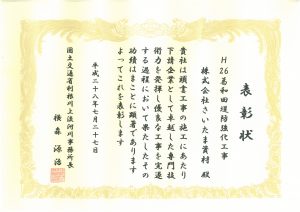 表彰状
H26葛和田堤防強化工事
株式会社さいたま資材 殿
貴社は頭書工事の施工にあたり
下請企業として卓越した専門技
術力を発揮し優良な工事を完遂
する過程において果たしたその
功績はまことに顕著であります
よってこれを表彰します
平成二十八年七月二十七日
国土交通省利根川上流河川事務所長